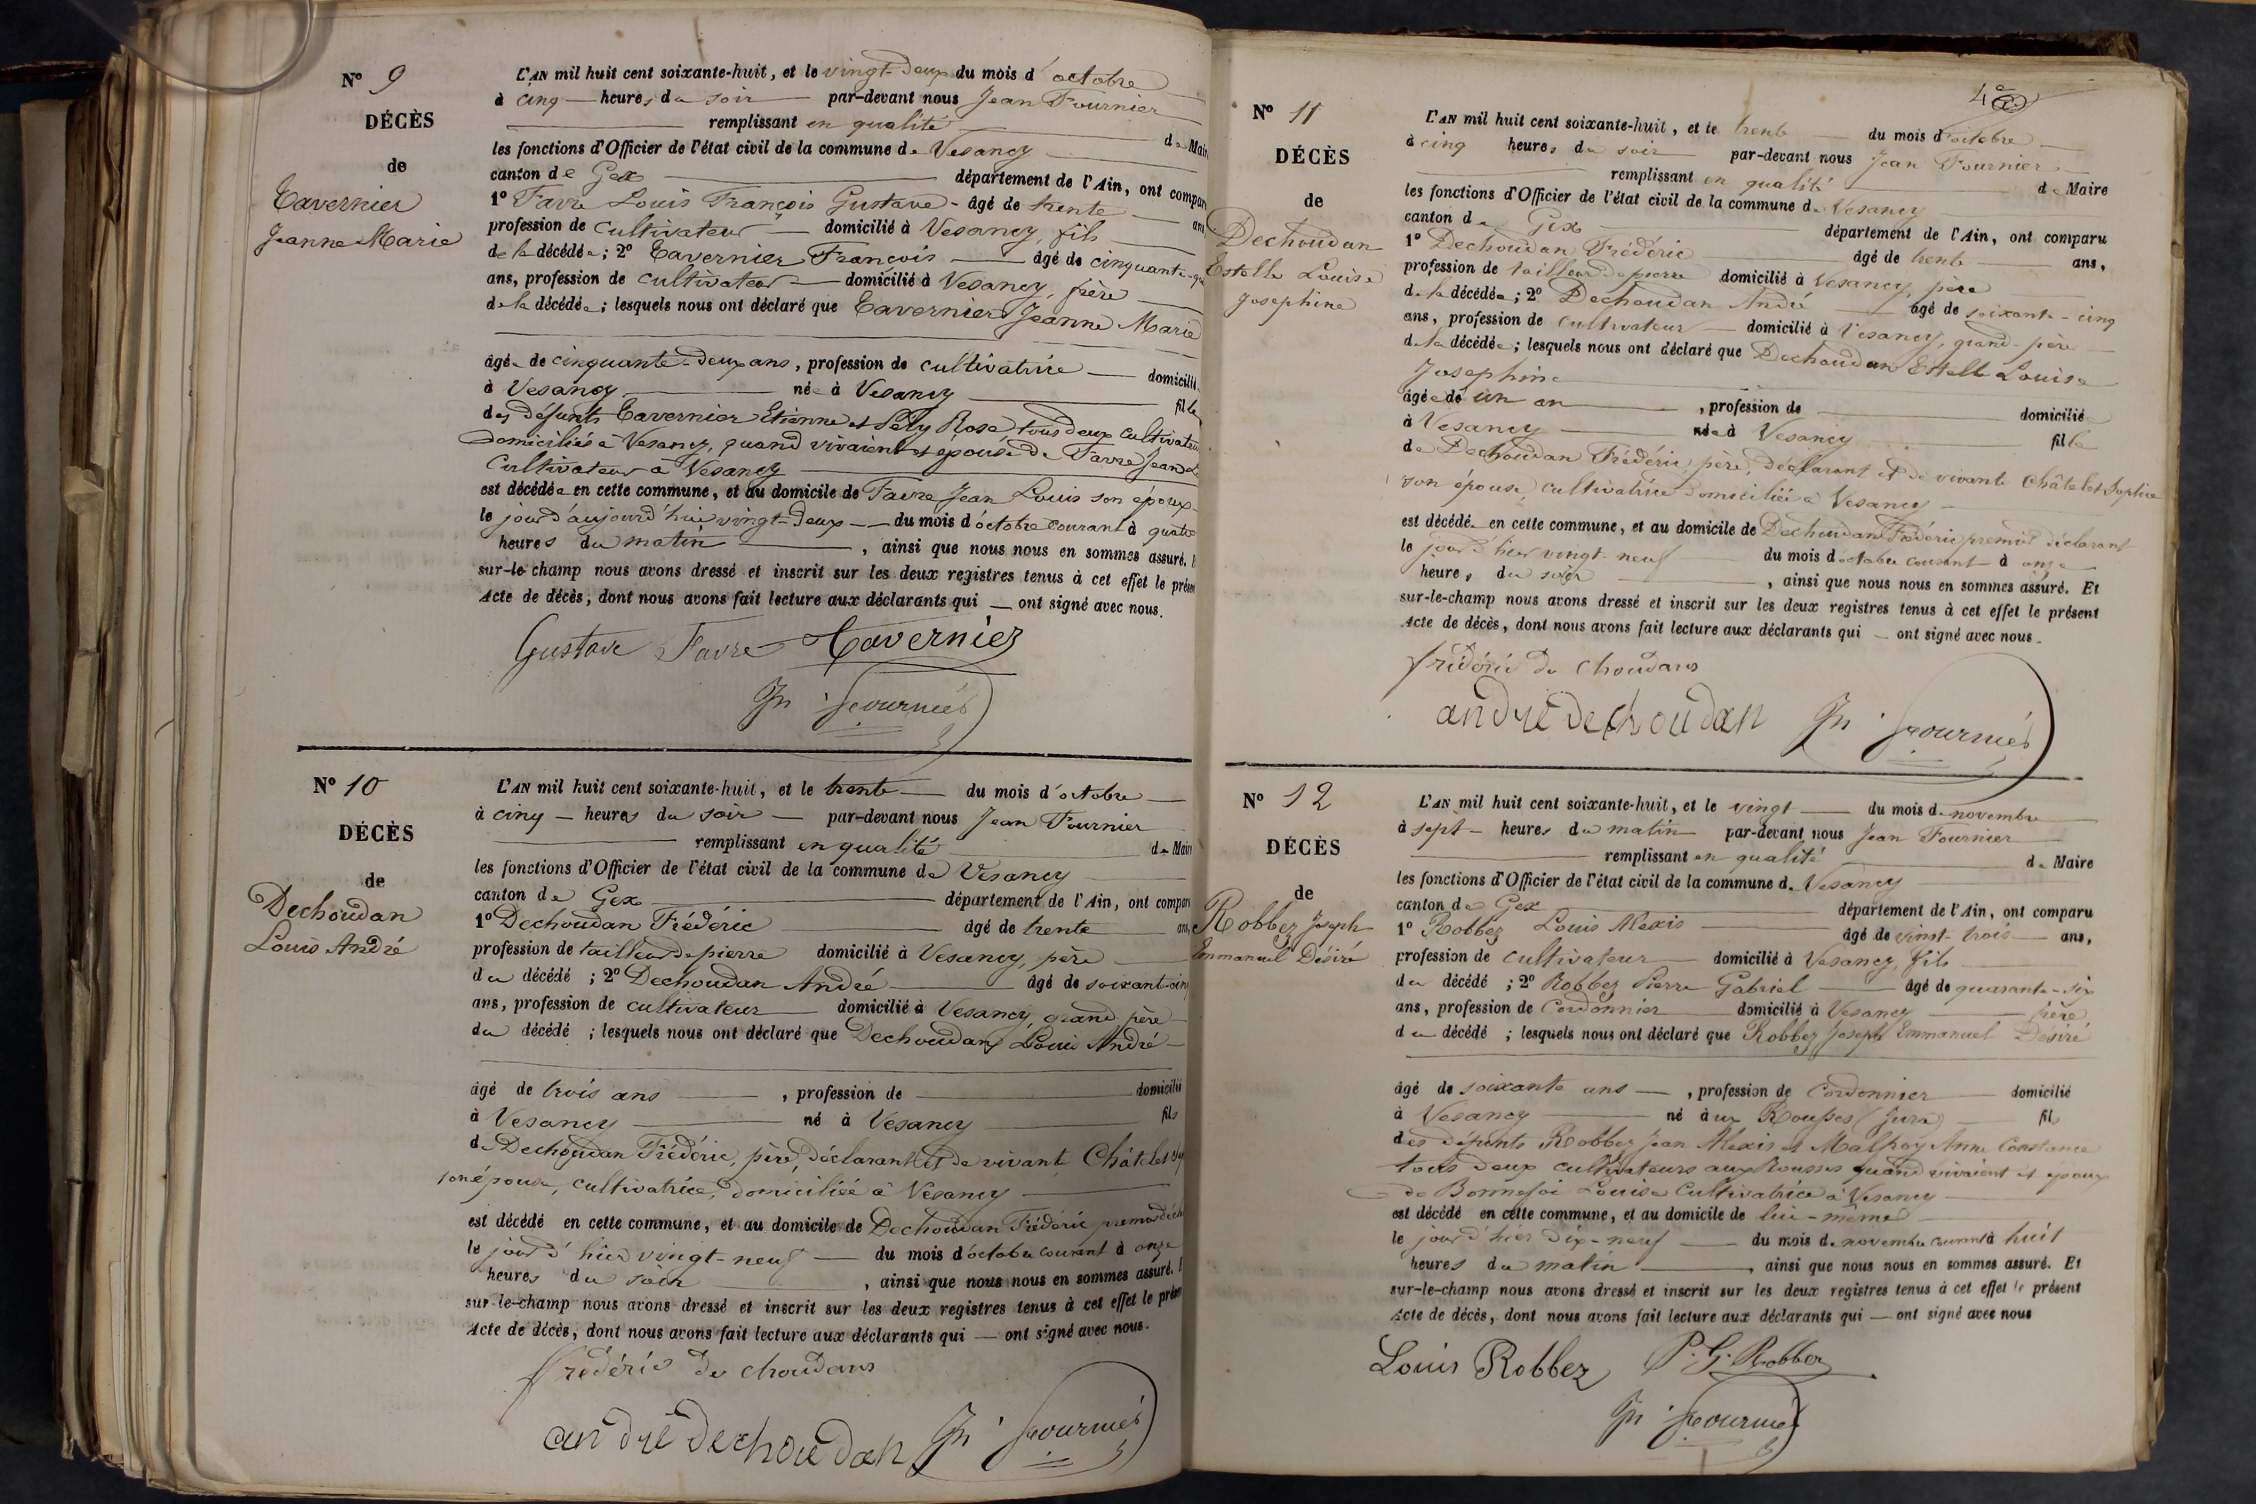 N° 9
DÉCÈS
de
Tavernier
Jeanne Marie
L'AN mil huit cent soixante-huit, et le vingt-deux du mois d'octobre
à cinq heures du soir par-devant nous Jean Fournier
remplissant en qualité de Mair
les fonctions d'Officier de l'état civil de la commune de Vesancy
canton de Gex département de l'Ain, ont compar
1° Favre Louis François Gustave - âgé de trente ans
profession de cultivateur domicilié à Vesancy, fils
de la décédée; 2° Tavernier François âgé de cinquante-
ans, profession de cultivateur domicilié à Vesancy, frère
de la décédée; lesquels nous ont déclaré que Tavernier Jeanne Marie
âgée de cinquante-deux ans, profession de cultivatrice domicilié
à Vesancy née à Vesancy fille
des défunts Tavernier Etienne et Rose tous deux cultivateurs
domiciliés à Vesancy, quand vivaient et épouse de Favre Jean
cultivateur à Vesancy
est décédée en cette commune, et au domicile de Favre Jean Louis son époux
le jour d'aujourd'hui vingt-deux du mois d'octobre courant à quatre
heures du matin, ainsi que nous nous en sommes assuré.
sur-le-champ nous avons dressé et inscrit sur les deux registres tenus à cet effet le présen
Acte de décès, dont nous avons fait lecture aux déclarants qui — ont signé avec nous.
Gustave Favre Tavernier
Jn Fournier
N° 10
DÉCÈS
de
Dechoudan
Louis André
L'AN mil huit cent soixante-huit, et le trente du mois d'octobre
à cinq heures du soir par-devant nous Jean Fournier
remplissant en qualité de Mair
les fonctions d'Officier de l'état civil de la commune de Vesancy
canton de Gex département de l'Ain, ont compar
1° Dechoudan Frédéric âgé de trente ans,
profession de tailleur de pierre domicilié à Vesancy, père
du décédé; 2° Dechoudan André âgé de soixant-cinq
ans, profession de cultivateur domicilié à Vesancy grand père
du décédé; lesquels nous ont déclaré que Dechoudan Louis André
âgé de trois ans, profession de domicilié
à Vesancy né à Vesancy fils
de Dechoudan Frédéric, père, déclarant et de vivante Châtelet
son épouse, cultivatrice, domiciliée à Vesancy
est décédé en cette commune, et au domicile de Dechoudan Frédéric premier
le jour d'hier vingt-neuf du mois d'octobre courant à onze
heures du soir, ainsi que nous nous en sommes assuré.
sur-le-champ nous avons dressé et inscrit sur les deux registres tenus à cet effet le présen
Acte de décès, dont nous avons fait lecture aux déclarants qui — ont signé avec nous.
frédéric de choudans
andré dechoudan Jn Fournier
N° 11
DÉCÈS
de
Dechoudan
Estelle Louise
Josephine
L'AN mil huit cent soixante-huit, et le trente du mois d'octobre
à cinq heures du soir par-devant nous Jean Fournier
remplissant en qualité de Maire
les fonctions d'Officier de l'état civil de la commune de Vesancy
canton de Gex département de l'Ain, ont comparu
1° Dechoudan Frédéric âgé de trente ans,
profession de tailleur de pierre domicilié à Vesancy, père
de la décédée; 2° Dechoudan André âgé de soixante-cinq
ans, profession de cultivateur domicilié à Vesancy, grand-père
de la décédée; lesquels nous ont déclaré que Dechoudan Estelle Louise
Josephine
âgée de un an, profession de domiciliée
à Vesancy née à Vesancy fille
de Dechoudan Frédéric père, déclarant et de vivante Châtelet Sophie
son épouse, cultivatrice domiciliée à Vesancy
est décédée en cette commune, et au domicile de Dechoudan Frédéric premier déclarant
le jour d'hier vingt-neuf du mois d'octobre courant à onze
heures du soir, ainsi que nous nous en sommes assuré. Et
sur-le-champ nous avons dressé et inscrit sur les deux registres tenus à cet effet le présent
Acte de décès, dont nous avons fait lecture aux déclarants qui — ont signé avec nous.
frédéric de choudans
andré dechoudan Jn Fournier
N° 12
DÉCÈS
de
Robbez Joseph
Emmanuel Désiré
L'AN mil huit cent soixante-huit, et le vingt du mois de novembre
à sept heures du matin par-devant nous Jean Fournier
remplissant en qualité de Maire
les fonctions d'Officier de l'état civil de la commune de Vesancy
canton de Gex département de l'Ain, ont comparu
1° Robbez Louis Alexis âgé de vingt-trois ans,
profession de cultivateur domicilié à Vesancy, fils
du décédé; 2° Robbez Pierre Gabriel âgé de quarante-six
ans, profession de Cordonnier domicilié à Vesancy frère
du décédé; lesquels nous ont déclaré que Robbez Joseph Emmanuel Désiré
âgé de soixante ans, profession de Cordonnier domicilié
à Vesancy né aux Rousses (Jura) fils
des défunts Robbez Jean Alexis et Malfroy Anne Constance
tous deux cultivateurs aux Rousses quand vivaient et époux
de Bonnefoi Louise Cultivatrice à Vesancy
est décédé en cette commune, et au domicile de lui-même
le jour d'hier dix-neuf du mois de novembre courant à huit
heures du matin, ainsi que nous nous en sommes assuré. Et
sur-le-champ nous avons dressé et inscrit sur les deux registres tenus à cet effet le présent
Acte de décès, dont nous avons fait lecture aux déclarants qui — ont signé avec nous
Louis Robbez P. G. Robbez
Jn Fournier